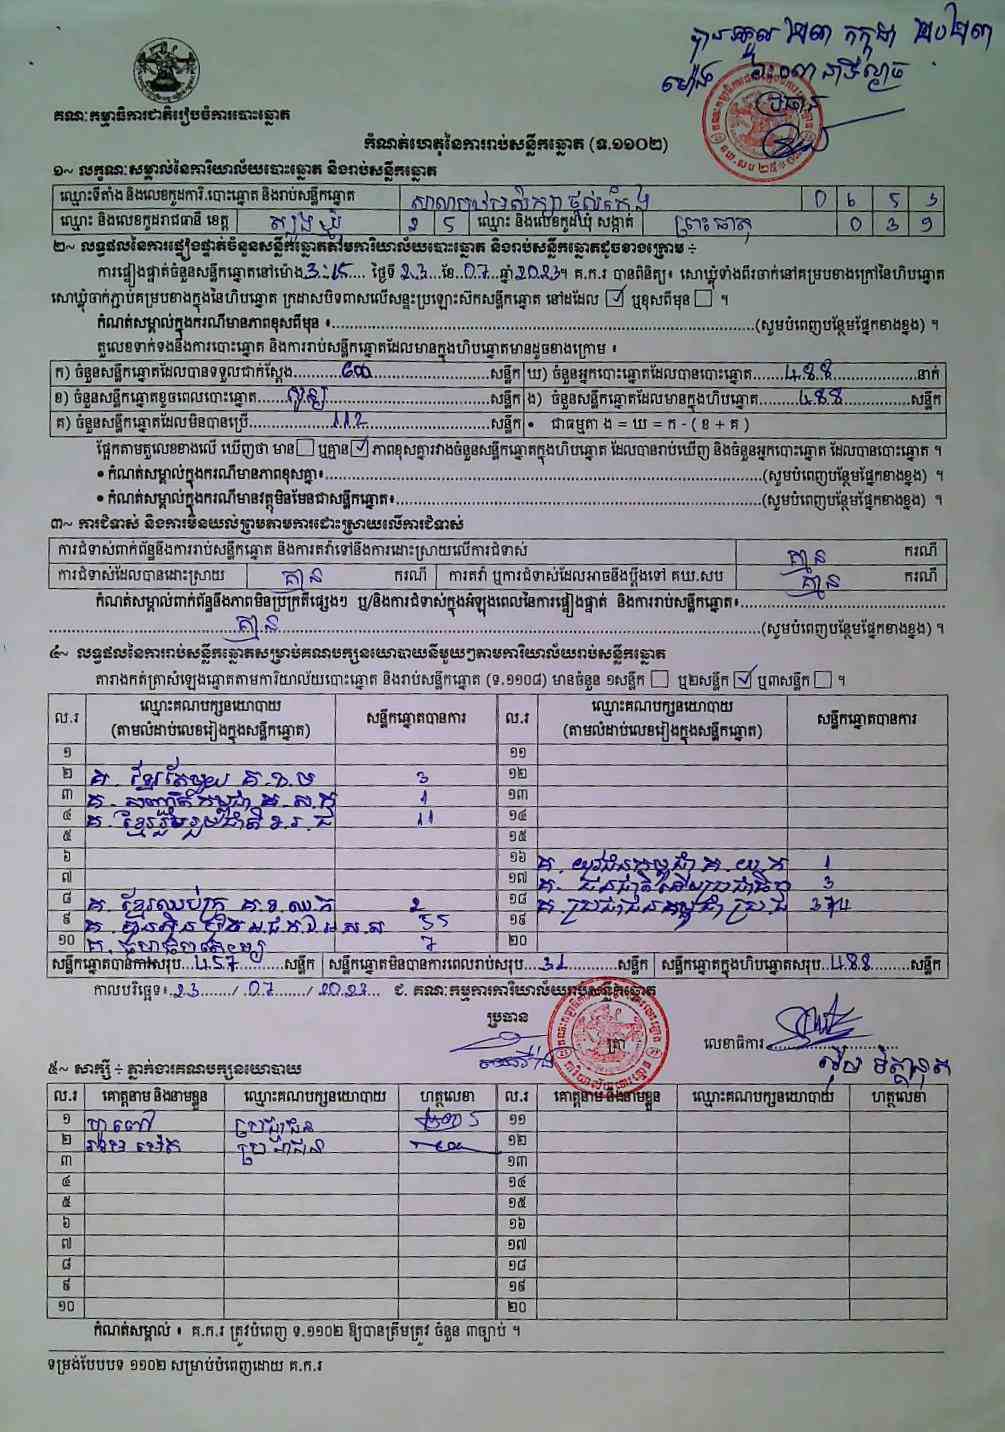 បានទទួល ២៣ កក្កដា ២០២៣
ម៉ោង ៦:០៣ នាទីល្ងាច
ប្រធាន
គណៈកម្មាធិការជាតិរៀបចំការបោះឆ្នោត
កំណត់ហេតុនៃការរាប់សន្លឹកឆ្នោត (ទ.១១០២)
១~ លក្ខណៈសម្គាល់នៃការិយាល័យបោះឆ្នោត និងរាប់សន្លឹកឆ្នោត
ឈ្មោះទីតាំង និងលេខកូដការិ.បោះឆ្នោត និងរាប់សន្លឹកឆ្នោត 0 6 5 3
ឈ្មោះ និងលេខកូដរាជធានី ខេត្ត ត្បូងឃ្មុំ 2 5 ឈ្មោះ និងលេខកូដឃុំ សង្កាត់ ព្រះធាតុ 0 3 9
២~ លទ្ធផលនៃការផ្ទៀងផ្ទាត់ចំនួនសន្លឹកឆ្នោតតាមការិយាល័យបោះឆ្នោត និងរាប់សន្លឹកឆ្នោតដូចខាងក្រោម ÷
ការផ្ទៀងផ្ទាត់ចំនួនសន្លឹកឆ្នោតនៅម៉ោង 3:15 ថ្ងៃទី 23 ខែ 07 ឆ្នាំ 2023 ។ គ.ក.រ បានពិនិត្យ៖ សោឃ្លុំទាំងពីរចាក់នៅគម្របខាងក្រៅនៃហិបឆ្នោត
សោឃ្លុំចាក់ភ្ជាប់គម្របខាងក្នុងនៃហិបឆ្នោត ក្រដាសបិទពាសលើសន្ទះប្រឡោះស៊កសន្លឹកឆ្នោត នៅដដែល ☑ ឬខុសពីមុន ☐ ។
កំណត់សម្គាល់ក្នុងករណីមានភាពខុសពីមុន ៖ (សូមបំពេញបន្ថែមផ្នែកខាងខ្នង) ។
តួលេខទាក់ទងនឹងការបោះឆ្នោត និងការរាប់សន្លឹកឆ្នោតដែលមានក្នុងហិបឆ្នោតមានដូចខាងក្រោម ៖
ក) ចំនួនសន្លឹកឆ្នោតដែលបានទទួលជាក់ស្តែង 600 សន្លឹក ឃ) ចំនួនអ្នកបោះឆ្នោតដែលបានបោះឆ្នោត 488 នាក់
ខ) ចំនួនសន្លឹកឆ្នោតខូចពេលបោះឆ្នោត សូន្យ សន្លឹក ង) ចំនួនសន្លឹកឆ្នោតដែលមានក្នុងហិបឆ្នោត 488 សន្លឹក
គ) ចំនួនសន្លឹកឆ្នោតដែលមិនបានប្រើ 112 សន្លឹក • ជាធម្មតា ង = ឃ = ក - ( ខ + គ )
ផ្អែកតាមតួលេខខាងលើ ឃើញថា មាន ☐ ឬគ្មាន ☑ ភាពខុសគ្នារវាងចំនួនសន្លឹកឆ្នោតក្នុងហិបឆ្នោត ដែលបានរាប់ឃើញ និងចំនួនអ្នកបោះឆ្នោត ដែលបានបោះឆ្នោត ។
• កំណត់សម្គាល់ក្នុងករណីមានភាពខុសគ្នា៖ (សូមបំពេញបន្ថែមផ្នែកខាងខ្នង) ។
• កំណត់សម្គាល់ក្នុងករណីមានវត្ថុមិនមែនជាសន្លឹកឆ្នោត៖ (សូមបំពេញបន្ថែមផ្នែកខាងខ្នង) ។
៣~ ការជំទាស់ និងការមិនយល់ព្រមតាមការដោះស្រាយលើការជំទាស់
ការជំទាស់ពាក់ព័ន្ធនឹងការរាប់សន្លឹកឆ្នោត និងការតវ៉ាទៅនឹងការដោះស្រាយលើការជំទាស់ គ្មាន ករណី
ការជំទាស់ដែលបានដោះស្រាយ គ្មាន ករណី ការតវ៉ា ឬការជំទាស់ដែលអាចនឹងប្តឹងទៅ គឃ.សប គ្មាន ករណី
កំណត់សម្គាល់ពាក់ព័ន្ធនឹងភាពមិនប្រក្រតីផ្សេងៗ ឬ/និងការជំទាស់ក្នុងអំឡុងពេលនៃការផ្ទៀងផ្ទាត់ និងការរាប់សន្លឹកឆ្នោត៖
គ្មាន (សូមបំពេញបន្ថែមផ្នែកខាងខ្នង) ។
៤~ លទ្ធផលនៃការរាប់សន្លឹកឆ្នោតសម្រាប់គណបក្សនយោបាយនីមួយៗតាមការិយាល័យរាប់សន្លឹកឆ្នោត
តារាងកត់ត្រាសំឡេងឆ្នោតតាមការិយាល័យបោះឆ្នោត និងរាប់សន្លឹកឆ្នោត (ទ.១១០៨) មានចំនួន ១សន្លឹក ☐ ឬ២សន្លឹក ☑ ឬ៣សន្លឹក ☐ ។
ល.រ ឈ្មោះគណបក្សនយោបាយ (តាមលំដាប់លេខរៀងក្នុងសន្លឹកឆ្នោត) សន្លឹកឆ្នោតបានការ ល.រ ឈ្មោះគណបក្សនយោបាយ (តាមលំដាប់លេខរៀងក្នុងសន្លឹកឆ្នោត) សន្លឹកឆ្នោតបានការ
១ ១១
២ គ. ខ្មែរតែមួយ គ.ខ.ម 3 ១២
៣ 1 ១៣
៤ គ. ខ្មែររួបរួមជាតិ ខ.រ.ជ 11 ១៤
៥ ១៥
៦ ១៦ គ. យុវជនកម្ពុជា គ.យ.ក 1
៧ ១៧ 3
៨ គ. ខ្មែរឈប់ក្រ គ.ខ.ឈ.ក 2 ១៨ គ. ប្រជាជនកម្ពុជា ប្រ.ជ 374
៩ គ. ហ៊្វុនស៊ិនប៉ិច 55 ១៩
១០ 7 ២០
សន្លឹកឆ្នោតបានការសរុប 457 សន្លឹក សន្លឹកឆ្នោតមិនបានការពេលរាប់សរុប 31 សន្លឹក សន្លឹកឆ្នោតក្នុងហិបឆ្នោតសរុប 488 សន្លឹក
កាលបរិច្ឆេទ៖ 23 / 07 / 2023 ជ. គណៈកម្មការការិយាល័យរាប់សន្លឹកឆ្នោត
ប្រធាន ត្រា លេខាធិការ
៥~ សាក្សី ÷ ភ្នាក់ងារគណបក្សនយោបាយ
ល.រ គោត្តនាម និងនាមខ្លួន ឈ្មោះគណបក្សនយោបាយ ហត្ថលេខា ល.រ គោត្តនាម និងនាមខ្លួន ឈ្មោះគណបក្សនយោបាយ ហត្ថលេខា
១ ប្រជាជន ១១
២ ប្រជាជន ១២
៣ ១៣
៤ ១៤
៥ ១៥
៦ ១៦
៧ ១៧
៨ ១៨
៩ ១៩
១០ ២០
កំណត់សម្គាល់ ៖ គ.ក.រ ត្រូវបំពេញ ទ.១១០២ ឱ្យបានត្រឹមត្រូវ ចំនួន ៣ច្បាប់ ។
ទម្រង់បែបបទ ១១០២ សម្រាប់បំពេញដោយ គ.ក.រ